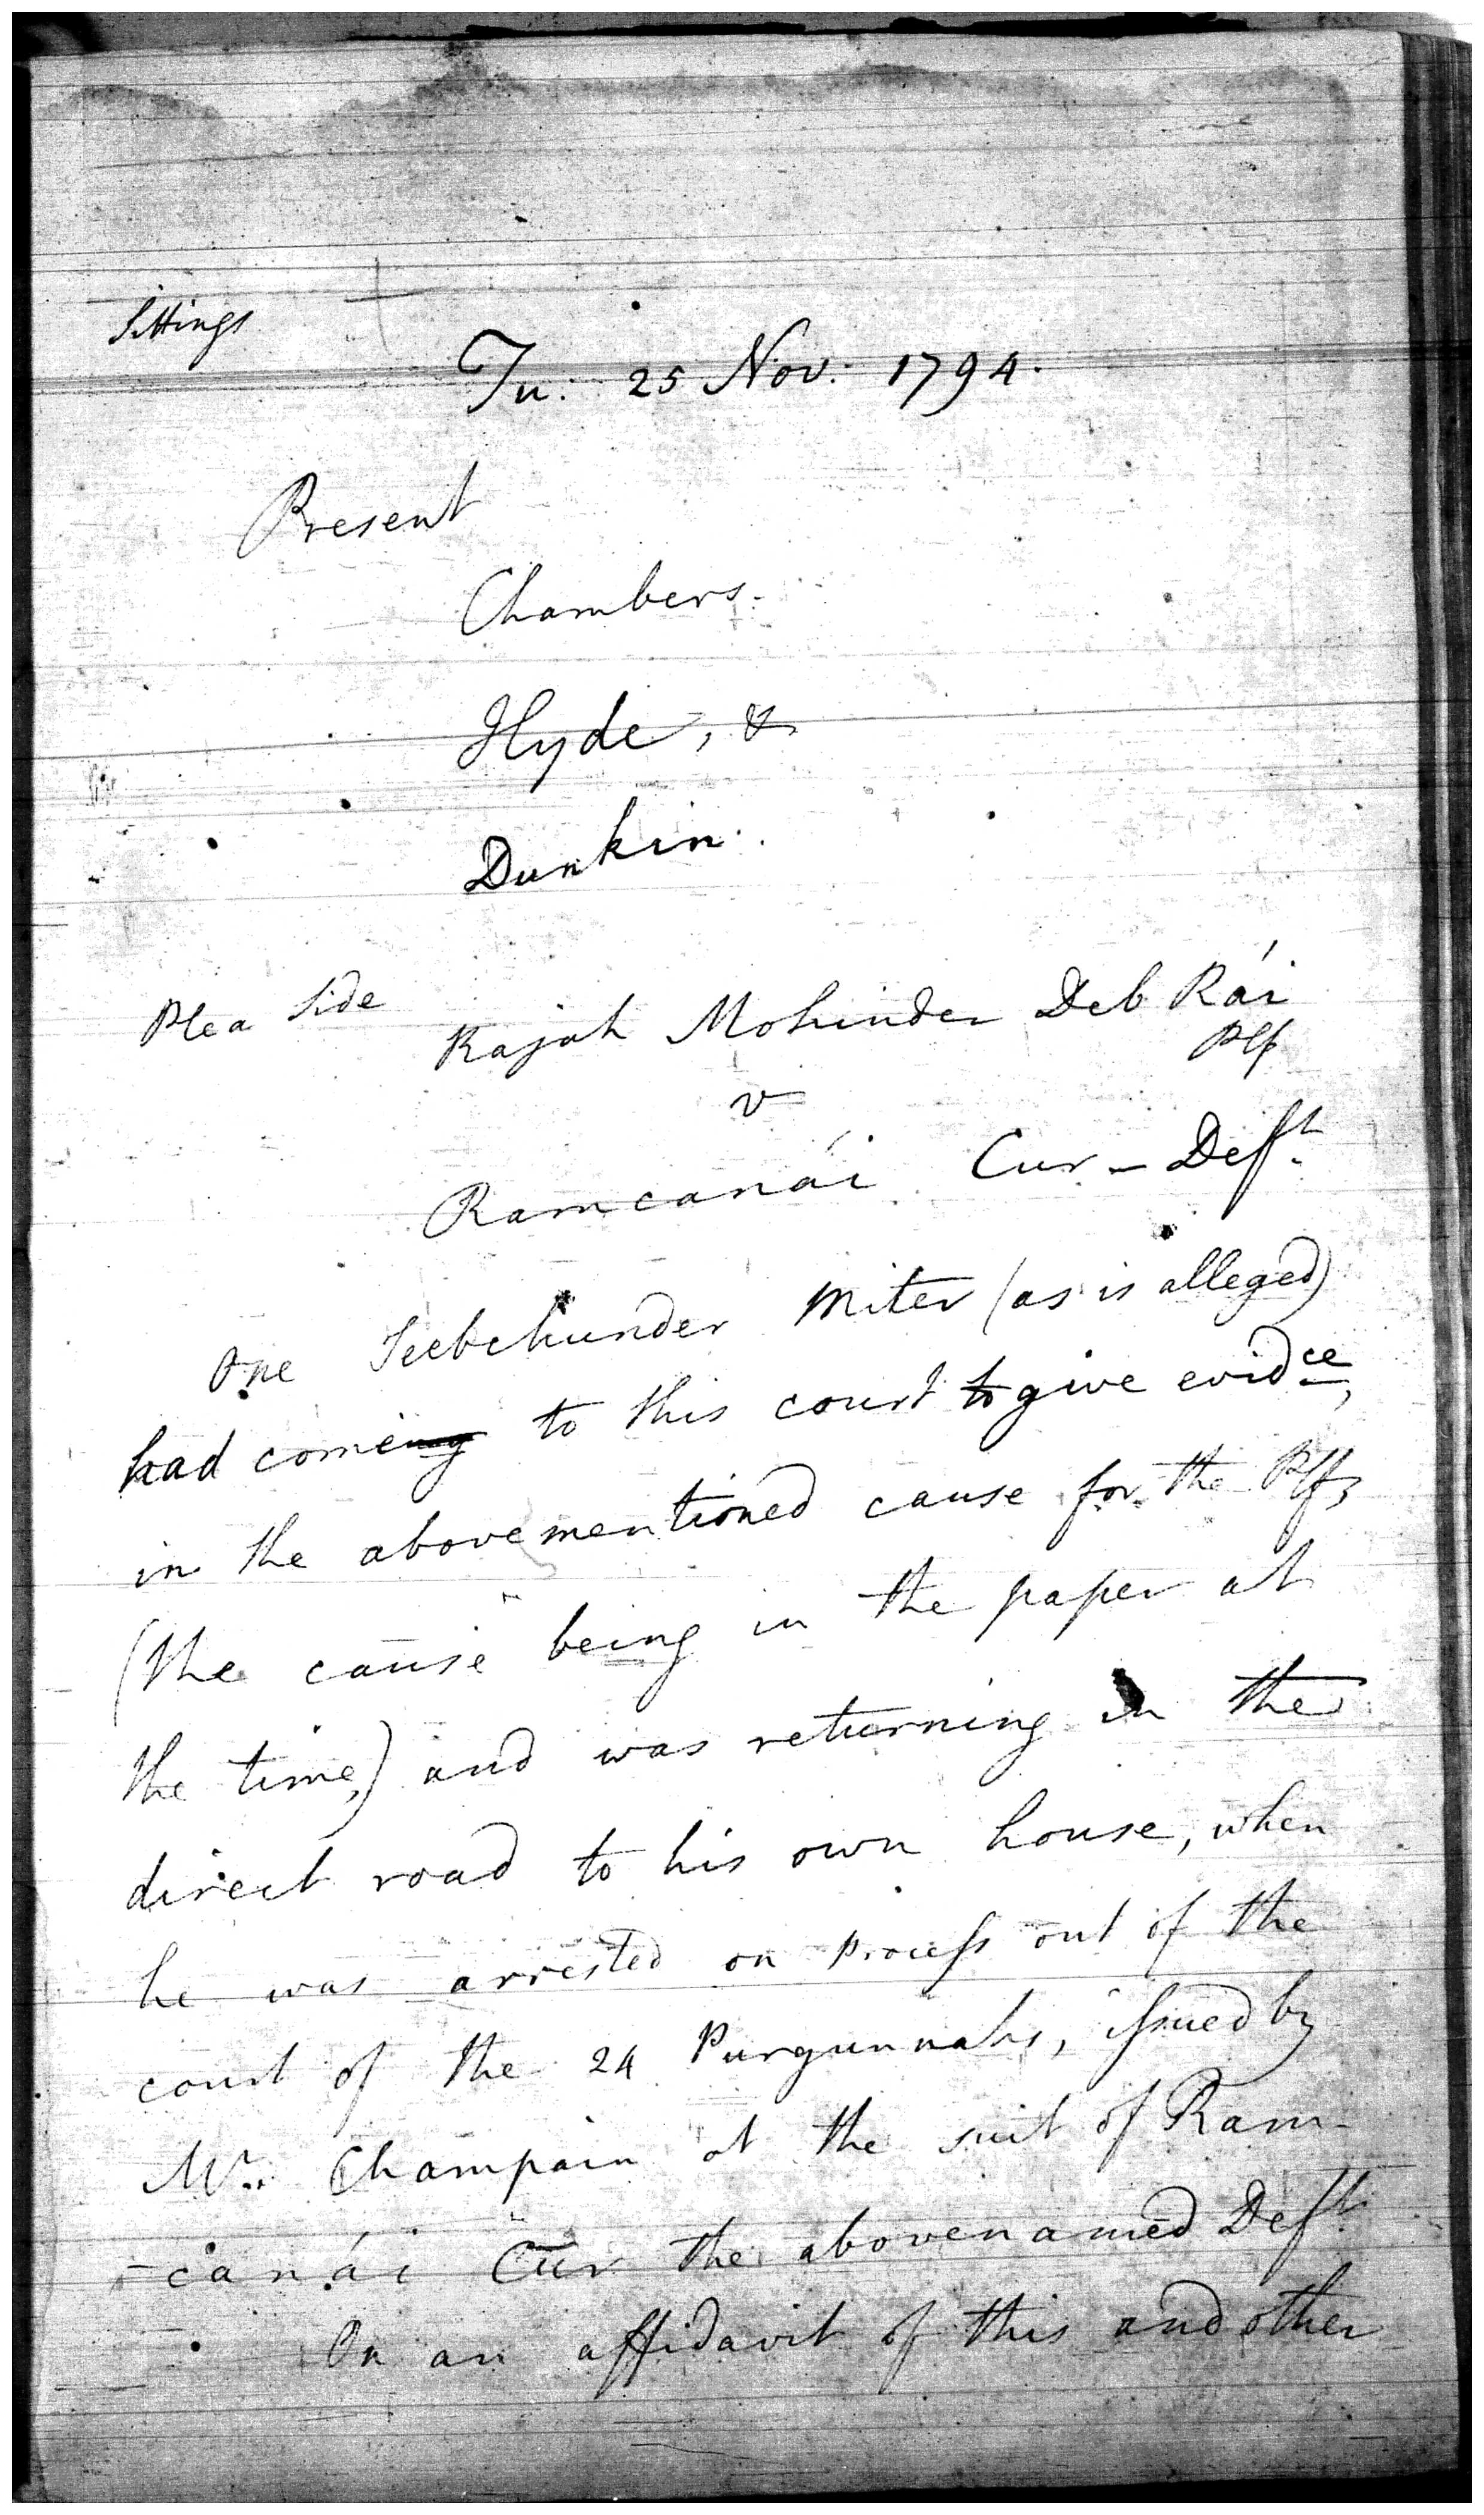 Sittings
Tu: 25 Nov: 1794.
Present
Chambers.
Hyde, &
Dunkin.
Plea Side
Rajah Mohinder Deb Rái
Plf
v
Ramcanái Cur - Deft.
One Seebchunder Miter (as is alleged)
had come to this court to give evidce,
in the abovementioned cause for the Plf,
(the cause being in the paper at
the time,) and was returning in the
direct road to his own house, when
he was arrested on process out of the
court of the 24 Purgunnahs, issued by
Mr. Champain at the suit of Ram-
-canái Cur the abovenamed Deft.
On an affidavit of this and other